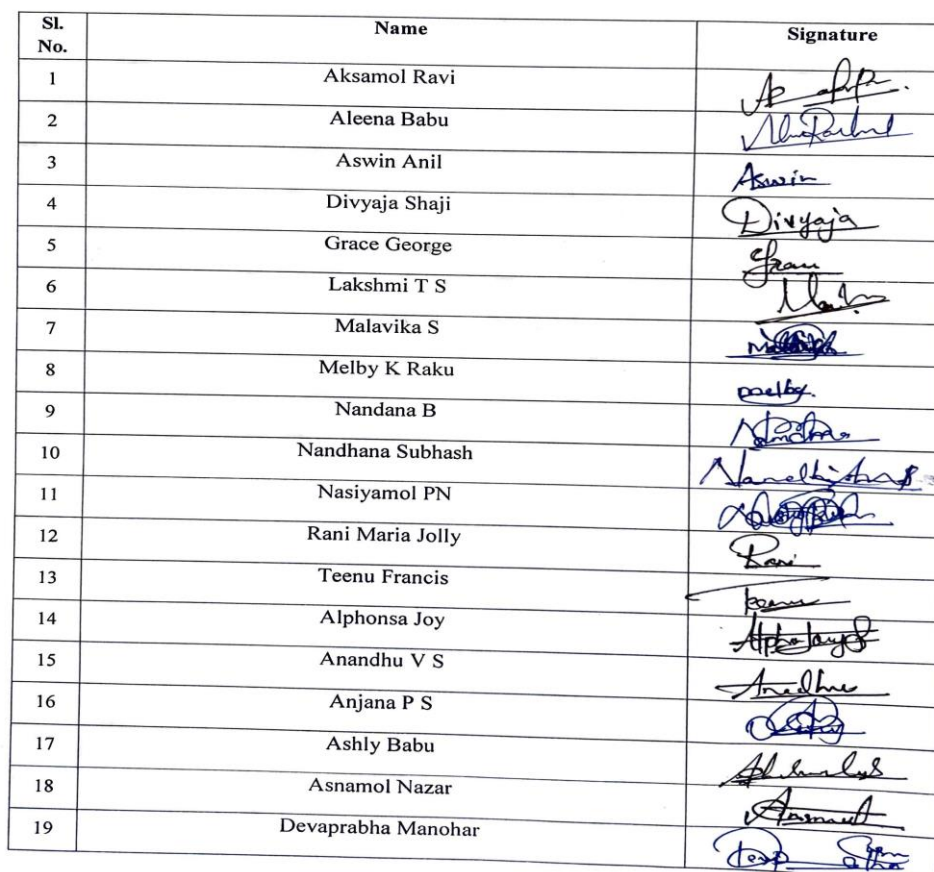 Sl. No. Name Signature
1 Aksamol Ravi
2 Aleena Babu
3 Aswin Anil Aswin
4 Divyaja Shaji Divyaja
5 Grace George
6 Lakshmi T S
7 Malavika S
8 Melby K Raku Melby
9 Nandana B
10 Nandhana Subhash
11 Nasiyamol PN
12 Rani Maria Jolly Rani
13 Teenu Francis
14 Alphonsa Joy
15 Anandhu V S
16 Anjana P S
17 Ashly Babu
18 Asnamol Nazar
19 Devaprabha Manohar